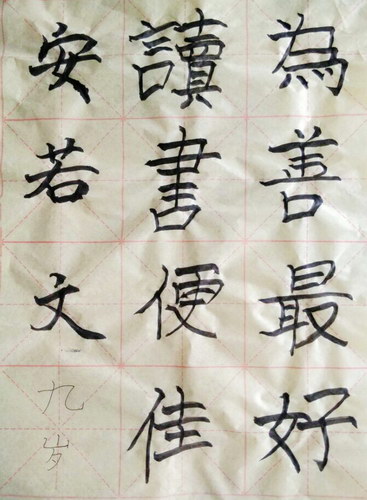 為善最好
讀書便佳
安若文
九岁